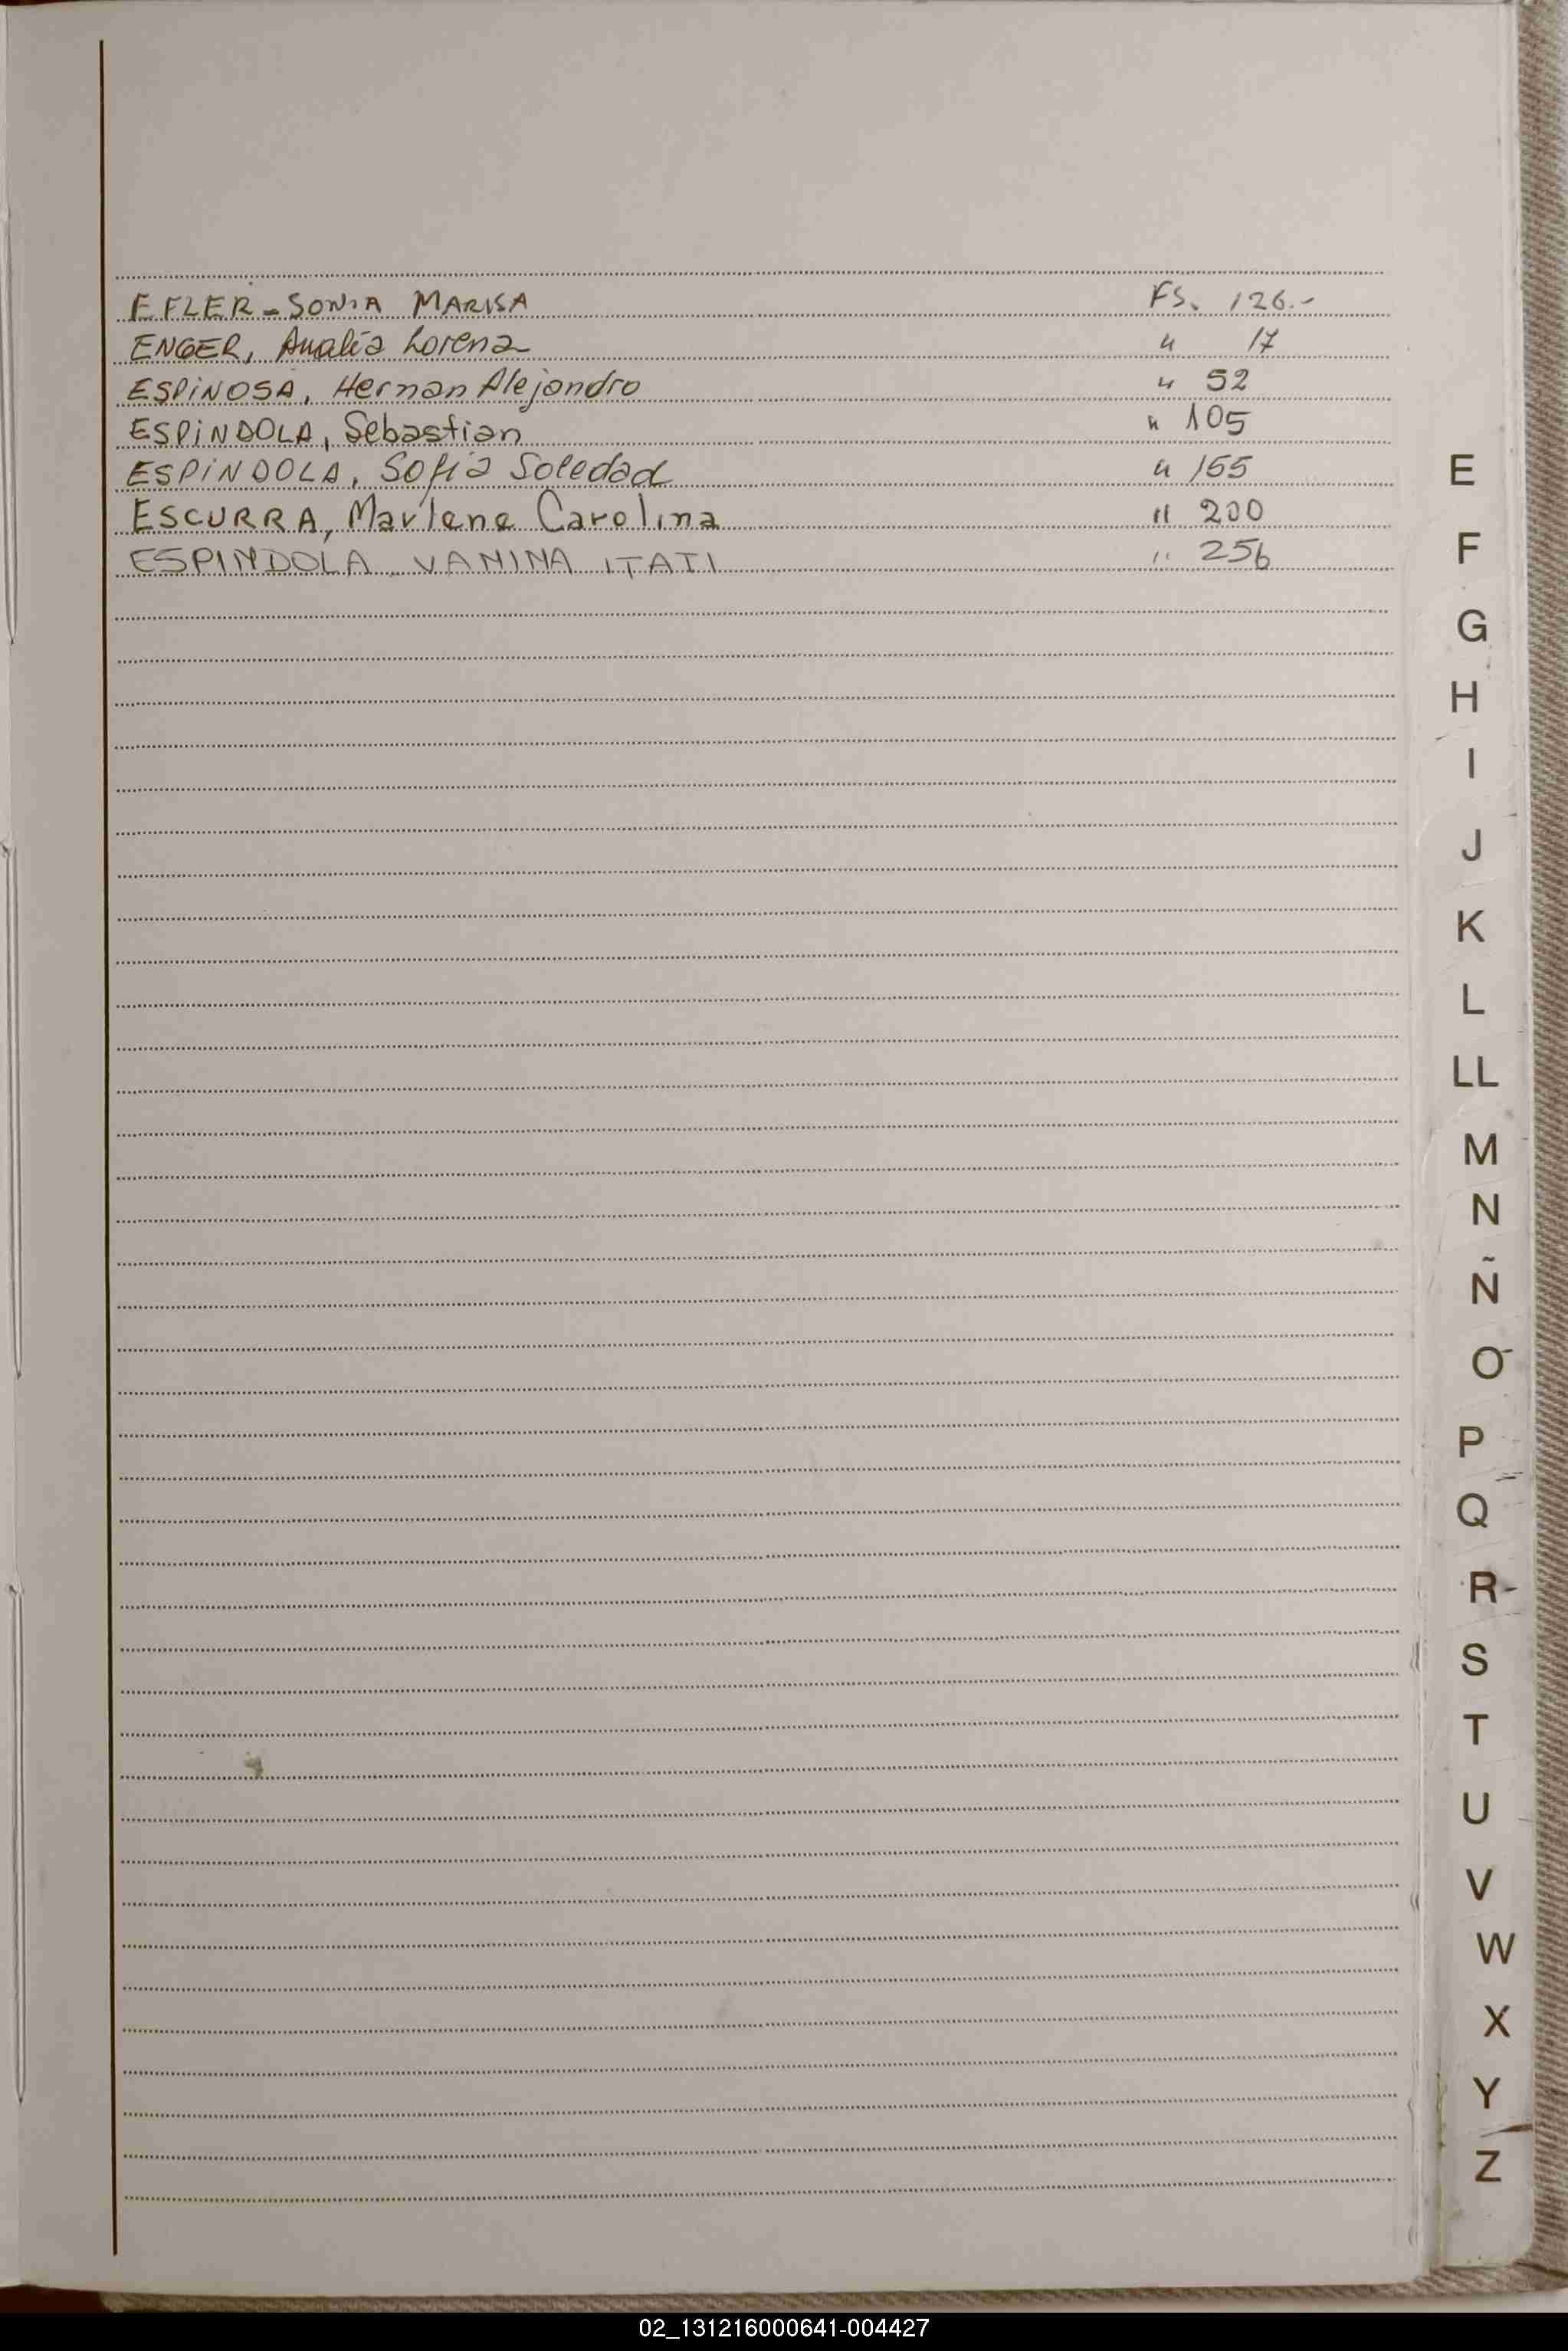 EFLER - SONIA MARISA FS. 126.-
ENGER, Analía Lorena " 17
ESPINOSA, Hernan Alejandro " 52
ESPINDOLA, Sebastian " 105
ESPINDOLA, Sofía Soledad " 155
ESCURRA, Marlene Carolina " 200
ESPINDOLA, VANINA ITATI " 256
E
F
G
H
I
J
K
L
LL
M
N
Ñ
O
P
Q
R
S
T
U
V
W
X
Y
Z
02_131216000641-004427